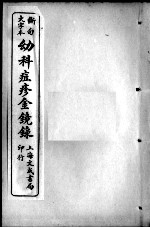 斷句
大字本
幼科痘疹金鏡錄
上海文成書局
印行